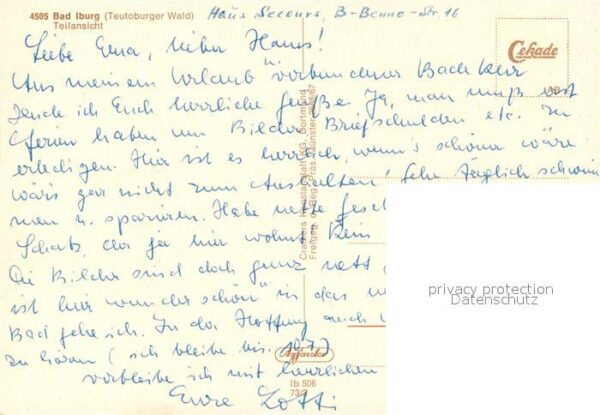 4505 Bad Iburg (Teutoburger Wald)
Teilansicht
Haus Secours, B-Benno-Str. 16
Cekade
Liebe Erna, lieber Hans!
Aus meinem Urlaub verbundener Badekur
sende ich Euch herrliche Grüße Ja, man muß erst
Ferien haben um Bilder Briefschulden etc. zu
erledigen. Hier ist es herrlich, wenn's schöner wäre
wär's gar nicht zum Aushalten! Gehe täglich schwim
men u. spazieren. Habe nette Gesel
Schatz, der ja hier wohnt! Kein
Die Bilder sind doch ganz nett
ist hier wunderschön in das
Bad gehe ich. In der Hoffnung auch
zu hören (ich bleibe bis
verbleibe ich mit herzlichen
Eure Lotti
Cramers Kunstanstalt KG, Dortmund
Freigeg. d. Reg. Präs. Münster
Agfacolor
Ib 506
73/2
privacy protection
Datenschutz